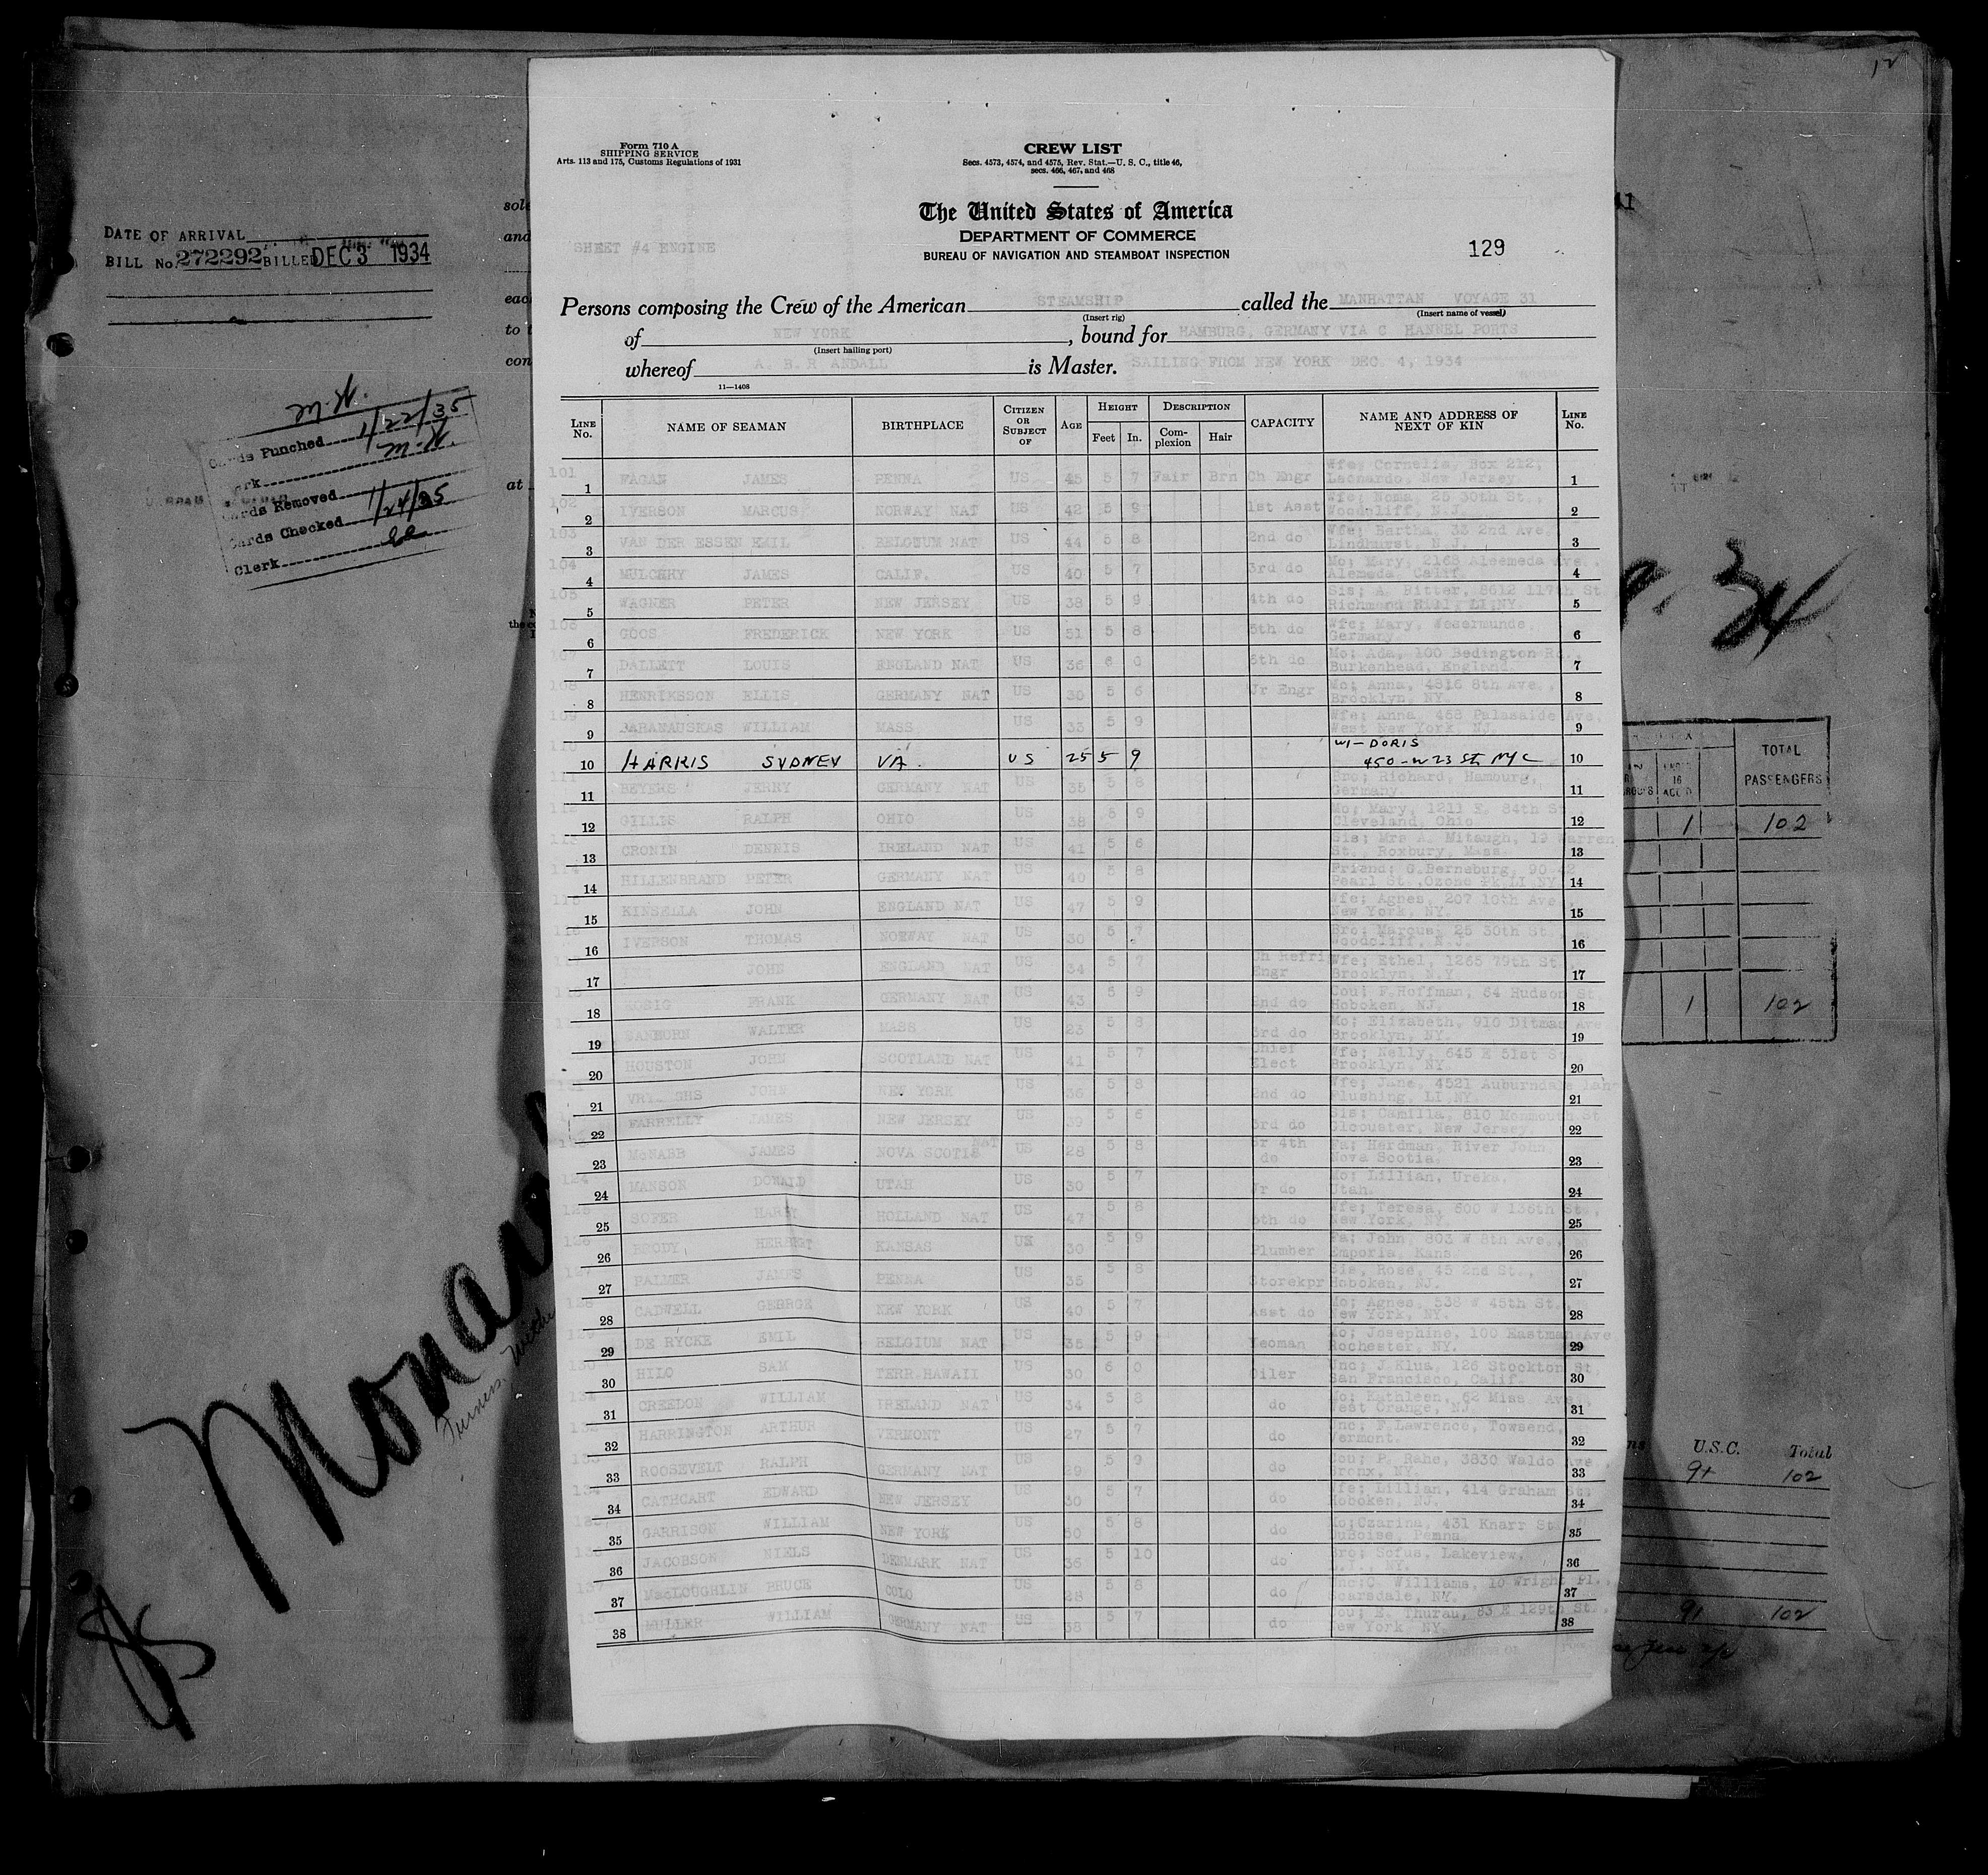 12
DATE OF ARRIVAL
BILL No. 272292 BILLED DEC 3 1934
M.H.
Cards Punched 1/22/35
M.H.
Cards Removed
Cards Checked 1/24/35
Clerk
Form 710 A
SHIPPING SERVICE
Arts. 113 and 175, Customs Regulations of 1931
CREW LIST
Secs. 4573, 4574, and 4575, Rev. Stat.—U. S. C., title 46,
secs. 466, 467, and 468
The United States of America
DEPARTMENT OF COMMERCE
BUREAU OF NAVIGATION AND STEAMBOAT INSPECTION
SHEET #4 ENGINE
129
Persons composing the Crew of the American STEAMSHIP called the MANHATTAN VOYAGE 31
(Insert rig) (Insert name of vessel)
of NEW YORK, bound for HAMBURG, GERMANY VIA C HANNEL PORTS
(Insert hailing port)
whereof A. B. R ANDALL is Master. SAILING FROM NEW YORK DEC. 4, 1934
11—1408
LINE No. NAME OF SEAMAN BIRTHPLACE CITIZEN OR SUBJECT OF AGE HEIGHT Feet In. DESCRIPTION Complexion Hair CAPACITY NAME AND ADDRESS OF NEXT OF KIN LINE No.
101 1 FAGAN JAMES PENNA US 45 5 7 Fair Brn Ch Engr Wfe; Cornelia, Box 212, Leonardo, New Jersey 1
102 2 IVERSON MARCUS NORWAY NAT US 42 5 9 1st Asst Wfe; Noma, 25 30th St., Woodcliff, N.J. 2
103 3 VAN DER ESSEN EMIL BELGIUM NAT US 44 5 8 2nd do Wfe; Bertha, 33 2nd Ave. Lindhurst, N.J. 3
104 4 MULCAHY JAMES CALIF. US 40 5 7 3rd do Mo; Mary, 2168 Alemeda Ave., Alemeda, Calif 4
105 5 WAGNER PETER NEW JERSEY US 38 5 9 4th do Sis; A. Bitter, 8612 117th St., Richmond Hill, LI NY 5
106 6 GOOS FREDERICK NEW YORK US 51 5 8 5th do Wfe; Mary, Wesermunde, Germany 6
107 7 DALLETT LOUIS ENGLAND NAT US 36 6 0 6th do Mo; Ada, 100 Bedington Rd., Burkenhead, England. 7
108 8 HENRIKSSON ELLIS GERMANY NAT US 30 5 6 Jr Engr Mo; Anna, 4816 8th Ave., Brooklyn, NY. 8
109 9 BABANAUSKAS WILLIAM MASS US 33 5 9 Wfe; Anna, 468 Palasaide Ave, West New York, NJ. 9
110 10 HARRIS SYDNEY VA. US 25 5 9 WI-DORIS 450-W 23 St NYC 10
111 11 BEYERS JERRY GERMANY NAT US 35 5 8 Bro; Richard, Hamburg, Germany. 11
112 12 GILLIS RALPH OHIO US 38 5 9 Mo; Mary, 1211 E. 84th St Cleveland, Ohio 12
113 13 CRONIN DENNIS IRELAND NAT US 41 5 6 Sis; Mrs A. Mitaugh, 12 Warren St., Roxbury, Mass 13
114 14 HILLENBRAND PETER GERMANY NAT US 40 5 8 Friend; G. Berneburg, 90 42 Pearl St., Ozone Pk, LI NY 14
115 15 KINSELLA JOHN ENGLAND NAT US 47 5 9 Wfe; Agnes, 207 10th Ave., New York, NY. 15
116 16 IVERSON THOMAS NORWAY NAT US 30 5 7 Bro; Marcus, 25 30th St., Woodcliff, N.J. 16
17 JOHN ENGLAND NAT US 34 5 7 Ch Refri Engr Wfe; Ethel, 1265 79th St Brooklyn, N.Y 17
118 18 KOSIG FRANK GERMANY NAT US 43 5 9 2nd do Cou; F. Hoffman, 64 Hudson St Hoboken, NJ. 18
19 SANBORN WALTER MASS US 23 5 8 3rd do Mo; Elizabeth, 910 Ditmas Ave Brooklyn, NY. 19
20 HOUSTON JOHN SCOTLAND NAT US 41 5 7 Chief Elect Wfe; Nelly, 645 E 51st St Brooklyn, NY. 20
21 JOHN NEW YORK US 36 5 8 2nd do Wfe; Jane, 4521 Auburndale Lane Flushing, LI NY. 21
22 FARRELLY JAMES NEW JERSEY US 39 5 6 3rd do Sis; Camilla, 810 Monmouth St Glouuster, New Jersey. 22
23 McNABB JAMES NOVA SCOTIA NAT US 28 5 8 Jr 4th do Fa; Herdman, River John Nova Scotia. 23
124 24 MANSOR DOWALD UTAH US 30 5 7 Jr do Mo; Lillian, Ureka, Utah. 24
125 25 SOFER HARRY HOLLAND NAT US 47 5 8 5th do Wfe; Teresa, 600 W 136th St., New York, NY. 25
126 26 BRODY HERBERT KANSAS US 30 5 9 Plumber Fa; John, 803 W 8th Ave., Emporia, Kans 26
127 27 PALMER JAMES PENNA US 35 5 8 Storekpr Sis, Rose, 45 2nd St., Hoboken, NJ. 27
128 28 CADWELL GEORGE NEW YORK US 40 5 7 Asst do Mo; Agnes, 538 W 45th St., New York, NY. 28
129 29 DE RYCKE EMIL BELGIUM NAT US 35 5 9 Yeoman Mo; Josephine, 100 Eastman Ave Rochester, NY. 29
130 30 HILO SAM TERR.HAWAII US 30 6 0 Oiler Unc; J. Klua, 126 Stockton St San Francisco, Calif. 30
131 31 CREEDON WILLIAM IRELAND NAT US 34 5 8 do Mo; Kathleen, 62 Miss Ave., West Orange, NJ. 31
132 32 HARRINGTON ARTHUR VERMONT US 27 5 7 do Unc; F. Lawrence, Towsend, Vermont. 32
133 33 ROOSEVELT RALPH GERMANY NAT US 29 5 9 do Cou; P. Rahe, 3830 Waldo Ave., Bronx, NY. 33
134 34 CATHCART EDWARD NEW JERSEY US 30 5 7 do Wfe; Lillian, 414 Graham St. Hoboken, NJ. 34
135 35 GARRISON WILLIAM NEW YORK US 50 5 8 do Mo; Czarina, 431 Knarr St. DuBoise, Penna. 35
136 36 JACOBSON NIELS DENMARK NAT US 36 5 10 do Bro; Sofus, Lakeview, NY. 36
137 37 MacLOUGHLIN BRUCE COLO US 28 5 8 do Unc; C. Williams, 10 Wright Pl., Scarsdale, NY. 37
138 38 MULLER WILLIAM GERMANY NAT US 38 5 7 do Cou; E. Thurau, 83 E 129th St., New York, NY. 38
TOTAL PASSENGERS
1 102
1 102
U.S.C. Total
91 102
91 102
Furness Withe